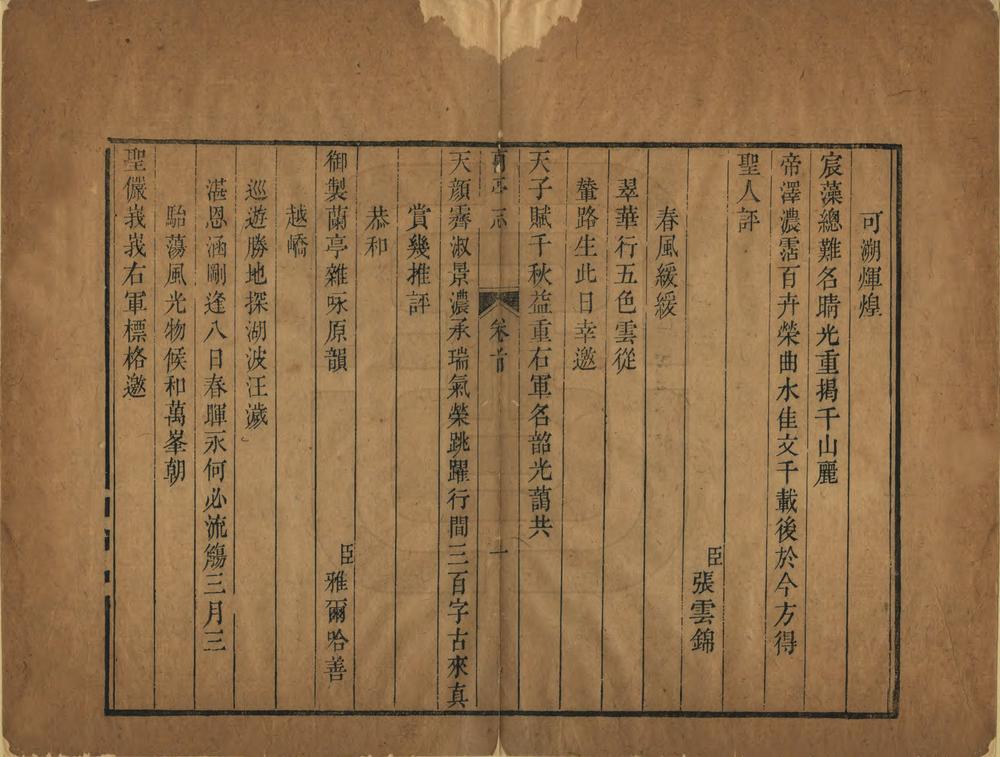 可溯煇煌
宸藻總難名晴光重揭千山麗
帝澤濃霑百卉榮曲水佳文千載後於今方得
聖人評
臣張雲錦
春風緩緩
翠華行五色雲從
輦路生此日幸邀
天子賦千秋益重右軍名韶光藹共
卷首
一
天顏霽淑景濃承瑞氣榮跳躍行間三百字古來真
賞幾推評
恭和
御製蘭亭雜咏原韻
臣雅爾哈善
越嶠
巡遊勝地探湖波汪濊
湛恩涵剛逢八日春暉永何必流觴三月三
駘蕩風光物候和萬峯朝
聖儼峩峩右軍標格邀